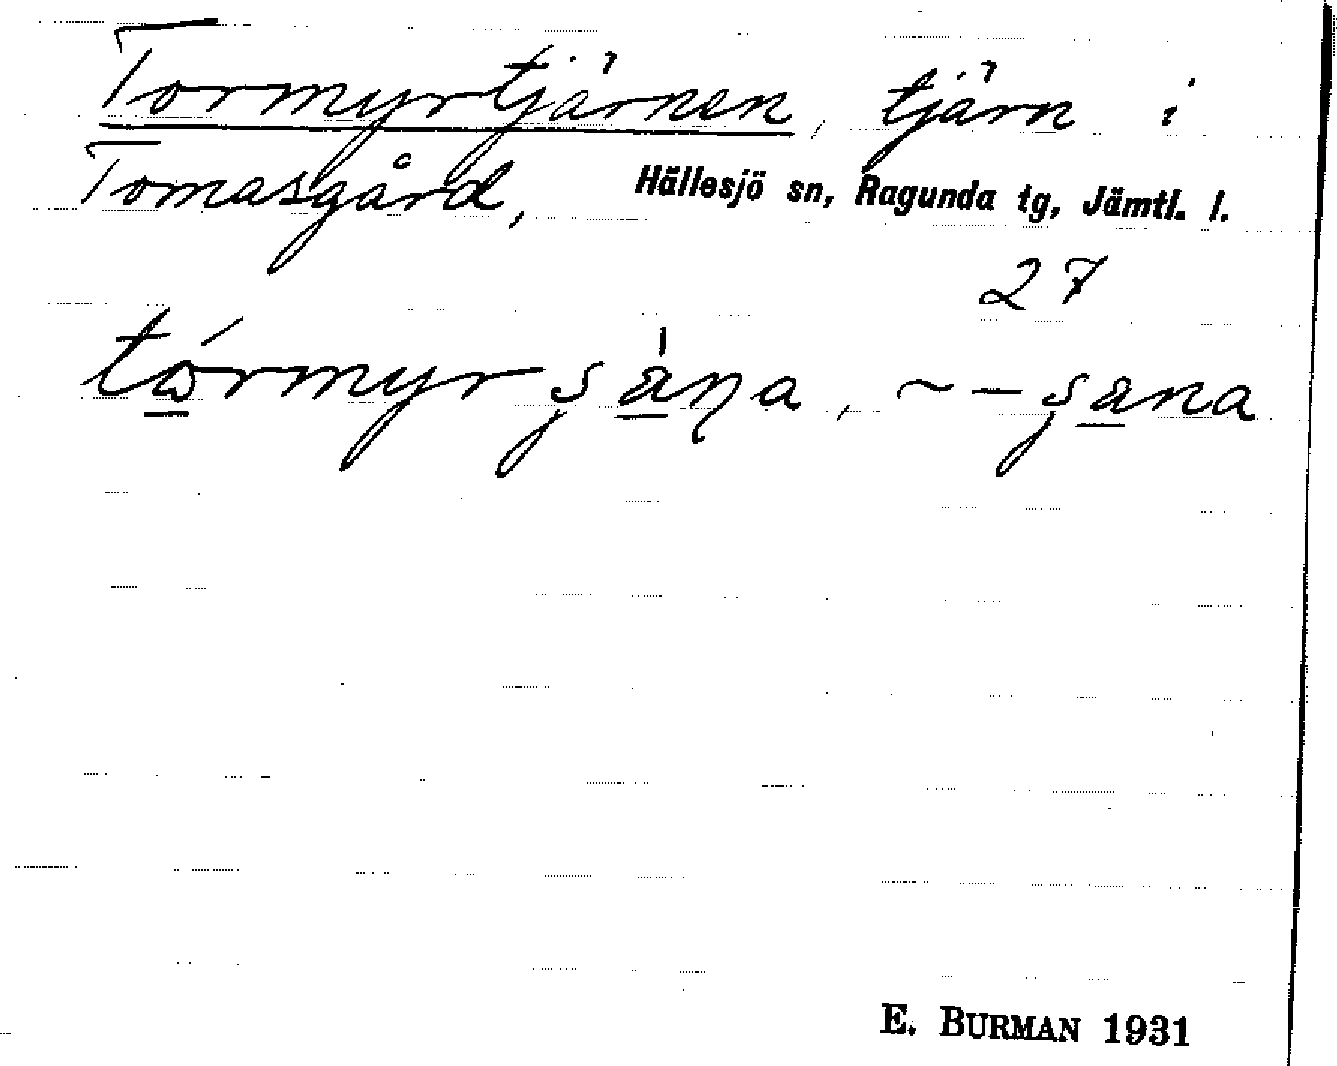 Tormyrtjärnen, tjärn i
Tomasgård, Hällesjö sn, Ragunda tg, Jämtl. l.
27
E. BURMAN 1931